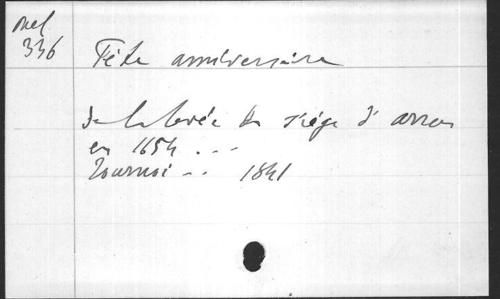 Mel
336
Fête anniversaire
de la levée du siège d'Arras
en 1654 ...
Tournoi .. 1841